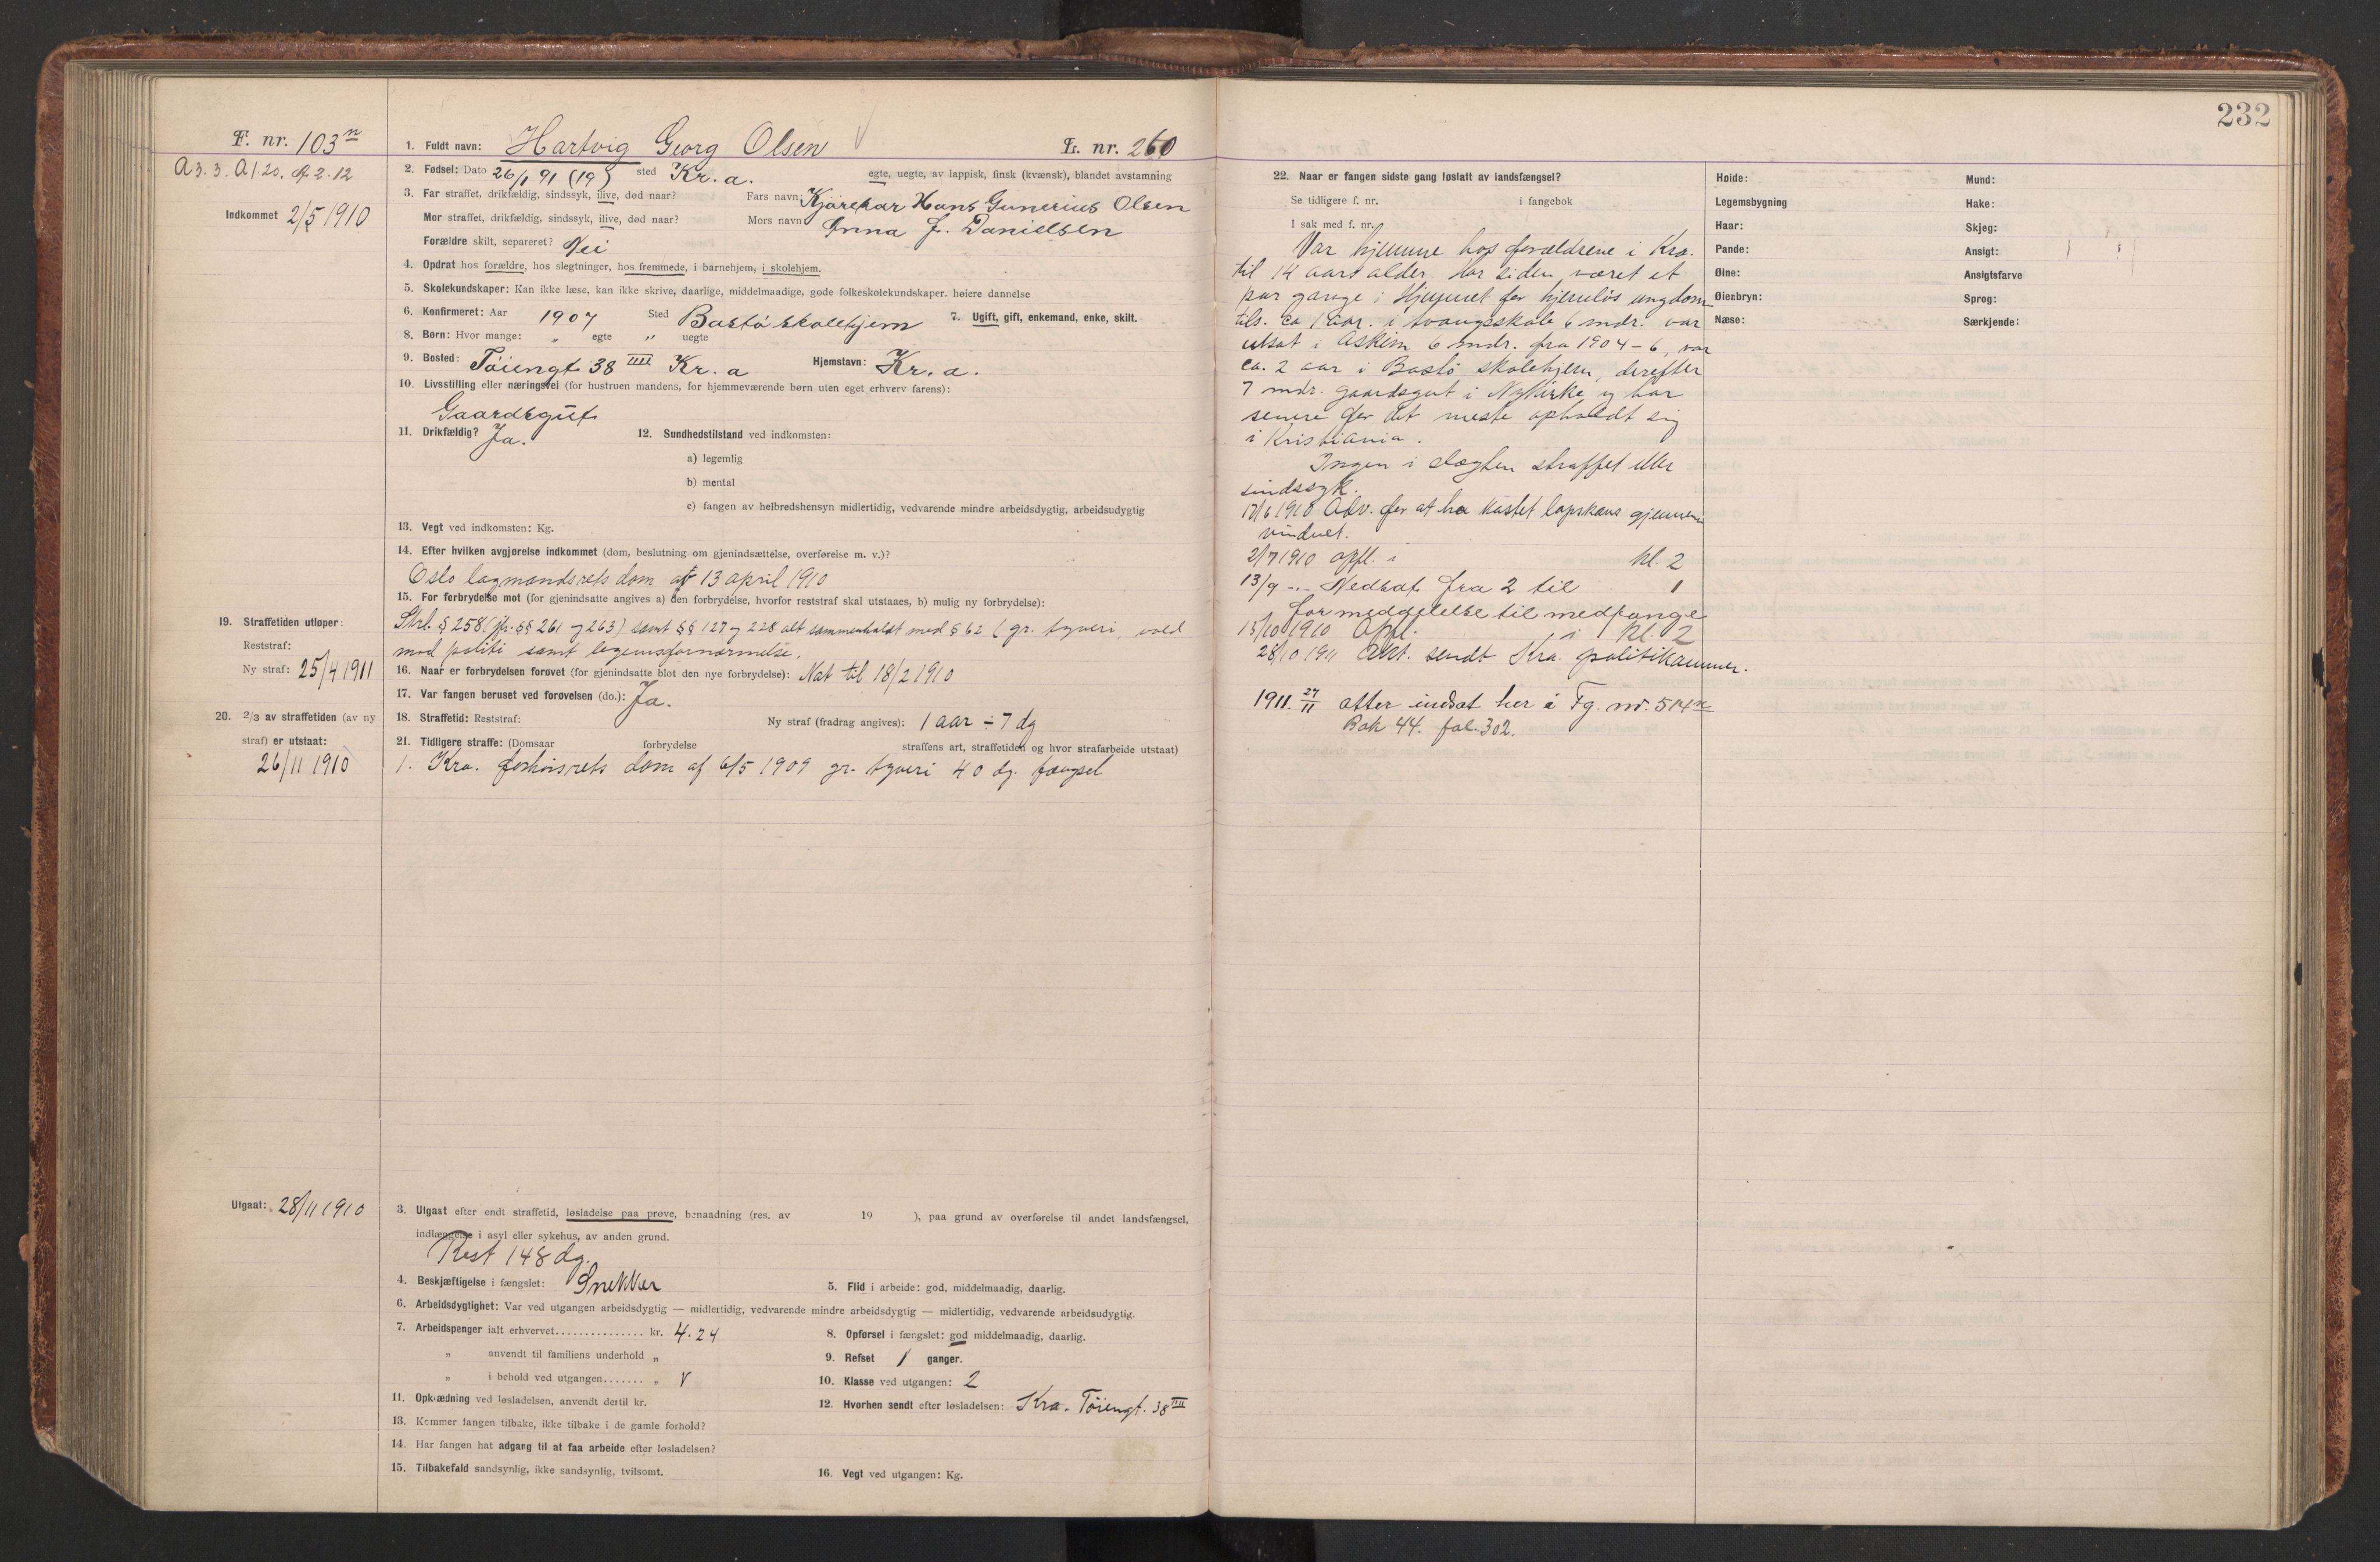 232
F. nr. 103n
A 3. 3. A 1. 20. A 2. 12
Indkommet 2/5 1910
1. Fuldt navn: Hartvig Georg Olsen L. nr. 260
2. Fødsel: Dato 26/1 91 (19) sted Kr.a. egte, uegte, av lappisk, finsk (kvænsk), blandet avstamning
3. Far straffet, drikfældig, sindssyk, ilive, død naar? Fars navn Kjørekar Hans Gunerius Olsen
Mor straffet, drikfældig, sindssyk, ilive, død naar? Mors navn Anna J. Danielsen
Forældre skilt, separeret? Nei
4. Opdrat hos forældre, hos slegtninger, hos fremmede, i barnehjem, i skolehjem.
5. Skolekundskaper: Kan ikke læse, kan ikke skrive, daarlige, middelmaadige, gode folkeskolekundskaper. høiere dannelse
6. Konfirmeret: Aar 1907 Sted Bastø skolehjem 7. Ugift, gift, enkemand, enke, skilt.
8. Børn: Hvor mange: „ egte „ uegte
9. Bosted: Tøiengt 38 IIII Kr.a Hjemstavn: Kr.a.
10. Livsstilling eller næringsvei (for hustruen mandens, for hjemmeværende børn uten eget erhverv farens):
Gaardsgut
11. Drikfældig? Ja. 12. Sundhedstilstand ved indkomsten:
a) legemlig
b) mental
c) fangen av helbredshensyn midlertidig, vedvarende mindre arbeidsdygtig, arbeidsudygtig
13. Vegt ved indkomsten: Kg.
14. Efter hvilken avgjørelse indkommet (dom, beslutning om gjenindsættelse, overførelse m. v.)?
Oslo lagmandsrets dom af 13 april 1910
15. For forbrydelse mot (for gjenindsatte angives a) den forbrydelse, hvorfor reststraf skal utstaaes, b) mulig ny forbrydelse):
Strl. § 258 (jfr. §§ 261 og 263) samt §§ 127 og 228 alt sammenholdt med § 62 (gr. tyveri, vold
mod politi samt legemsfornærmelse.
16. Naar er forbrydelsen forøvet (for gjenindsatte blot den nye forbrydelse): Nat til 18/2 1910
17. Var fangen beruset ved forøvelsen (do.): Ja.
18. Straffetid: Reststraf: Ny straf (fradrag angives): 1 aar ÷ 7 dg
19. Straffetiden utløper:
Reststraf:
Ny straf: 25/4 1911
20. 2/3 av straffetiden (av ny
straf) er utstaat:
26/11 1910
21. Tidligere straffe: (Domsaar forbrydelse straffens art, straffetiden og hvor strafarbeide utstaat)
1. Kra. forhørsrets dom af 6/5 1909 gr. tyveri 40 dg. fængsel
Utgaat: 28/11 1910
3. Utgaat efter endt straffetid, løsladelse paa prøve, benaadning (res. av 19 ), paa grund av overførelse til andet landsfængsel,
indlæggelse i asyl eller sykehus, av anden grund.
Rest 148 dg.
4. Beskjæftigelse i fængslet: Snekker 5. Flid i arbeide: god, middelmaadig, daarlig.
6. Arbeidsdygtighet: Var ved utgangen arbeidsdygtig — midlertidig, vedvarende mindre arbeidsdygtig — midlertidig, vedvarende arbeidsudygtig.
7. Arbeidspenger ialt erhvervet............... kr. 4.24 8. Opførsel i fængslet: god middelmaadig, daarlig.
„ anvendt til familiens underhold „ 9. Refset 1 ganger.
„ i behold ved utgangen....... „ V 10. Klasse ved utgangen: 2
11. Opklædning ved løsladelsen, anvendt dertil kr. 12. Hvorhen sendt efter løsladelsen: Kra. Tøiengt. 38 IIII
13. Kommer fangen tilbake, ikke tilbake i de gamle forhold?
14. Har fangen hat adgang til at faa arbeide efter løsladelsen?
15. Tilbakefald sandsynlig, ikke sandsynlig, tvilsomt. 16. Vegt ved utgangen: Kg.
22. Naar er fangen sidste gang løslatt av landsfængsel?
Se tidligere f. nr. i fangebok
I sak med f. nr.
Var hjemme hos forældrene i Kra.
til 14 aars alder. Har siden været et
par gange i Hjemmet for hjemløs ungdom
tils. ca 1 aar. i tvangsskole 6 mdr. var
utsat i Askim 6 mdr. fra 1904-6, var
ca. 2 aar i Bastø skolehjem, derefter
7 mdr. gaardsgut i Nykirke og har
senere for det meste opholdt sig
i Kristiania.
Ingen i slægten straffet eller
sindssyk.
17/6 1910 Adv. for at ha kastet lapskaus gjennem
vinduet.
2/7 1910 opfl. i kl. 2
13/9 -"- Nedsat fra 2 til 1
for meddelelse til medfange
15/10 1910 Opfl. i kl. 2
28/10 1911 Akt. sendt Kra. politikammer.
1911. 27/11 atter indsat her i Fg. nr. 514n
Bok 44. fol. 302.
Høide: Mund:
Legemsbygning Hake:
Haar: Skjeg:
Pande: Ansigt:
Øine: Ansigtsfarve
Øienbryn: Sprog:
Næse: Særkjende: